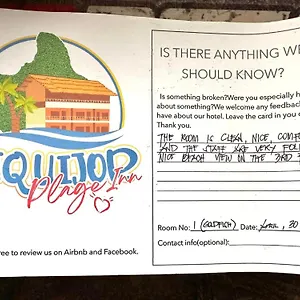 SIQUIJOR
Plage Inn
ree to review us on Airbnb and Facebook.
IS THERE ANYTHING WE
SHOULD KNOW?
Is something broken?Were you especially h
about something?We welcome any feedback
have about our hotel. Leave the card in you
Thank you.
THE ROOM IS CLEAN, NICE COMF
AND THE STAFF ARE VERY POLI
NICE BEACH VIEW ON THE 3RD
Room No: 1 (GOLDFISH) Date: APRIL, 30
Contact info(optional):